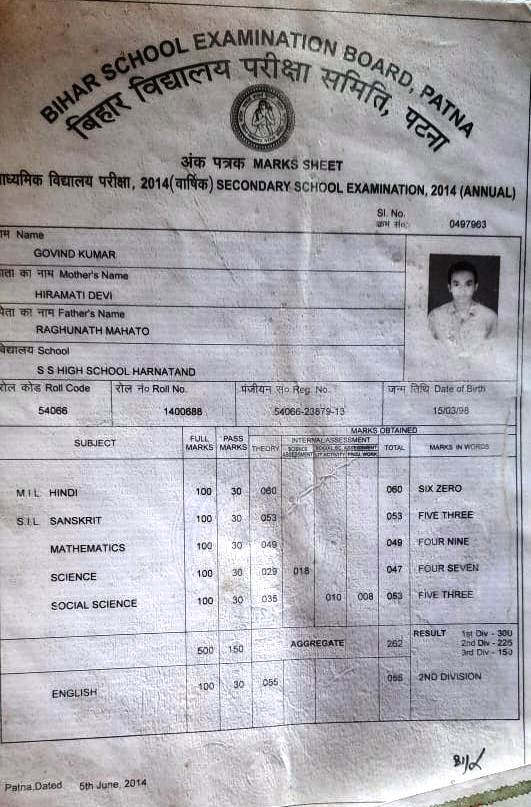 BIHAR SCHOOL EXAMINATION BOARD, PATNA
बिहार विद्यालय परीक्षा समिति, पटना
अंक पत्रक MARKS SHEET
ाध्यमिक विद्यालय परीक्षा, 2014(वार्षिक) SECONDARY SCHOOL EXAMINATION, 2014 (ANNUAL)
Sl. No.
क्रम सं० 0497963
ाम Name
GOVIND KUMAR
ाता का नाम Mother's Name
HIRAMATI DEVI
पिता का नाम Father's Name
RAGHUNATH MAHATO
विद्यालय School
S S HIGH SCHOOL HARNATAND
रोल कोड Roll Code रोल नं० Roll No. पंजीयन सं० Reg. No. जन्म तिथि Date of Birth
54066 1400688 54066-23879-13 15/03/98
SUBJECT FULL MARKS PASS MARKS MARKS OBTAINED
THEORY INTERNAL ASSESSMENT TOTAL MARKS IN WORDS
M I L HINDI 100 30 060 060 SIX ZERO
S.I.L SANSKRIT 100 30 053 053 FIVE THREE
MATHEMATICS 100 30 049 049 FOUR NINE
SCIENCE 100 30 029 018 047 FOUR SEVEN
SOCIAL SCIENCE 100 30 035 010 008 053 FIVE THREE
500 150 AGGREGATE 262 RESULT 1st Div - 300
2nd Div - 225
3rd Div - 150
ENGLISH 100 30 055 055 2ND DIVISION
Patna,Dated 5th June, 2014